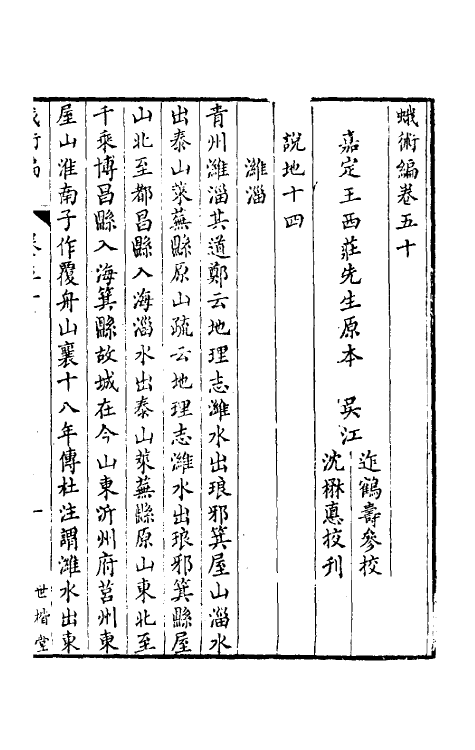 蛾術編卷五十
嘉定王西莊先生原本　吳江
迮鶴壽參校
沈楙惪挍刊
說地十四
濰淄
青州濰淄其道鄭云地理志濰水出琅邪箕屋山淄水
出泰山萊蕪縣原山疏云地理志濰水出琅邪箕縣屋
山北至都昌縣入海淄水出泰山萊蕪縣原山東北至
千乘博昌縣入海箕縣故城在今山東沂州府莒州東
屋山淮南子作覆舟山襄十八年傳杜注謂濰水出東
蛾術編　卷五十　一　世楷堂